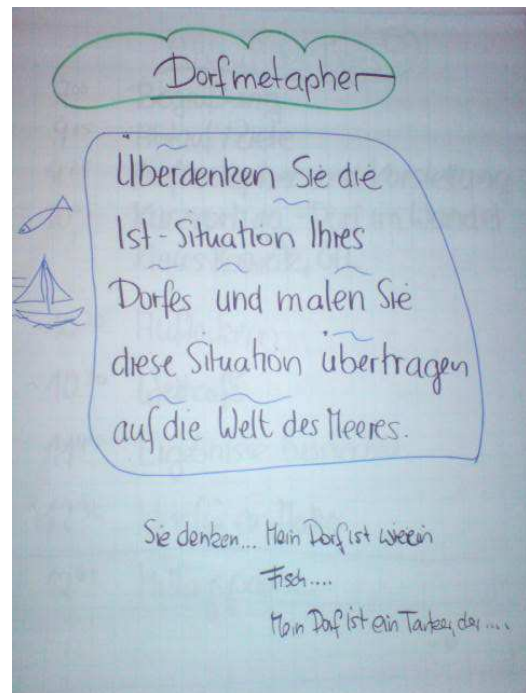 Dorfmetapher
Überdenken Sie die
Ist-Situation Ihres
Dorfes und malen Sie
diese Situation übertragen
auf die Welt des Meeres.
Sie denken... Mein Dorf ist wie ein
Fisch....
Mein Dorf ist ein Tanker, der....